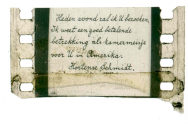 "Heden avond zal ik U bezoeken.
Ik weet een goed betalende
betrekking als kamermeisje
voor U in Amerika.
Hortense Schmidt.